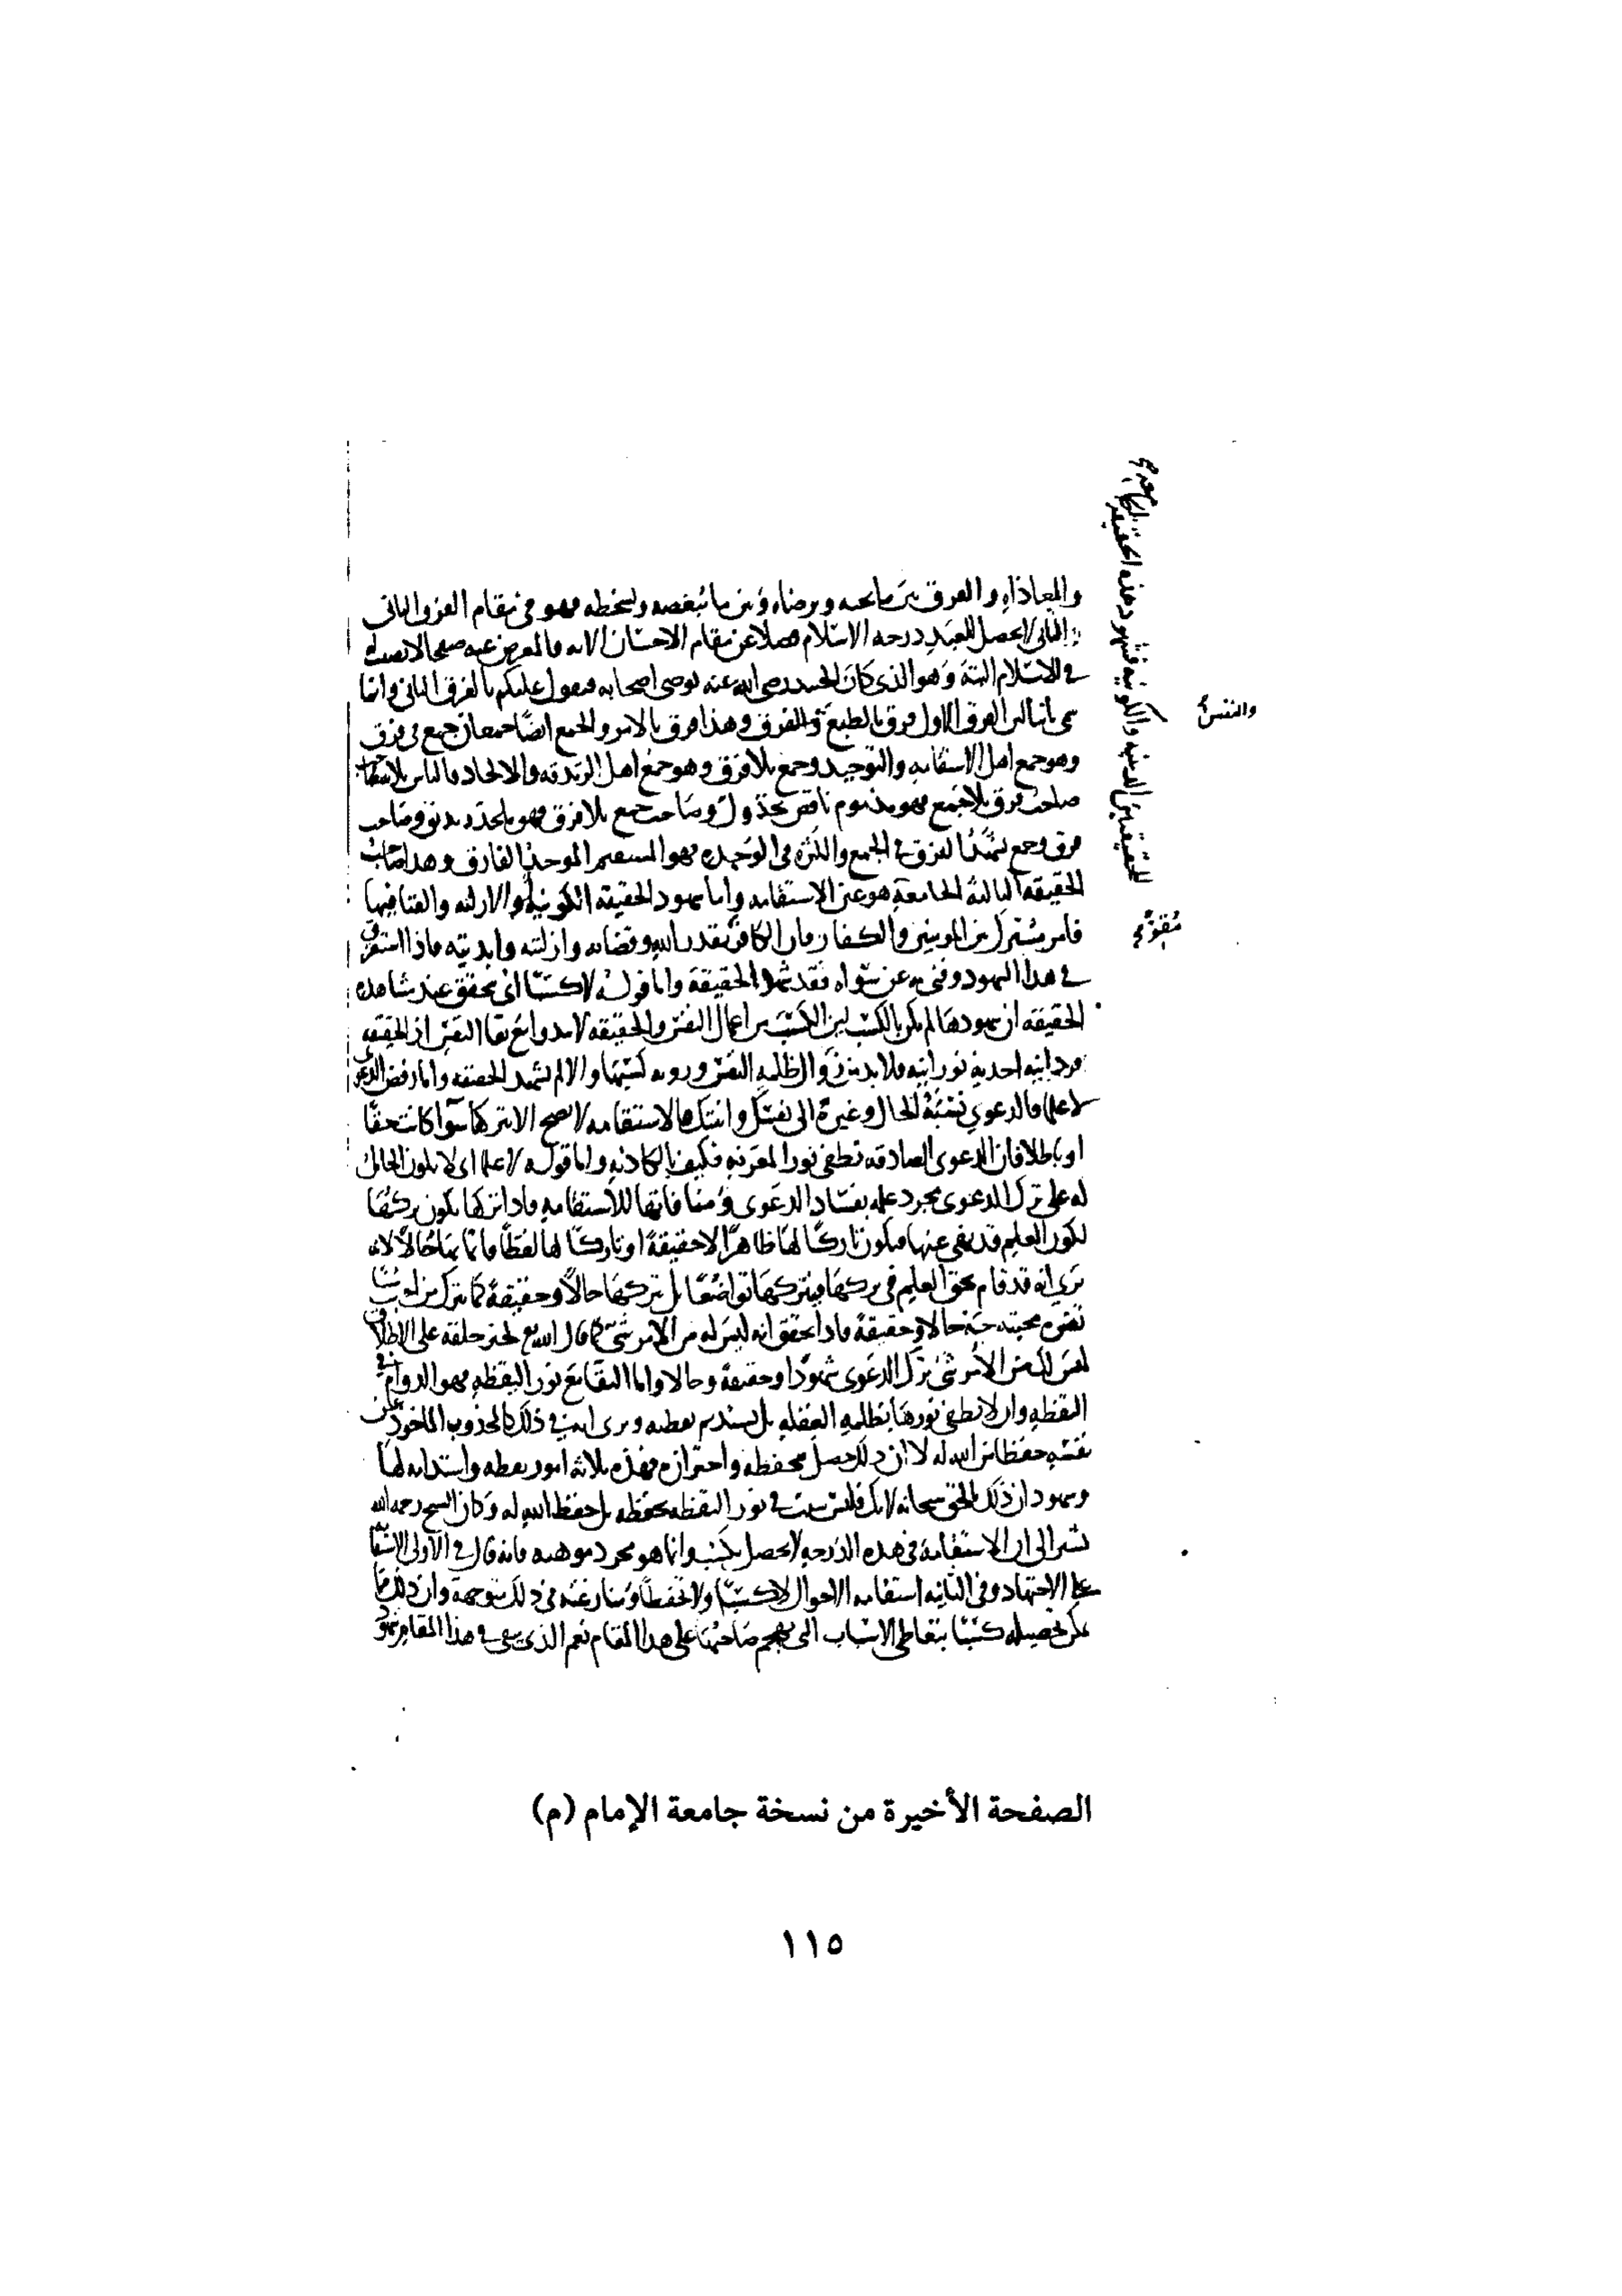 والمعاداة والفرق بين ما يحبه ويرضاه وبين ما يبغضه ويسخطه فهو في مقام الفرق الثاني
الثاني لا يحصل للعبد درجة الاسلام فضلا عن مقام الاحسان الا به فالمعرض عنه صفحا لا نصيب له
في الاسلام البتة وهو الذي كان الجنيد رضي الله عنه يوصي اصحابه فيقول عليكم بالفرق الثاني وانما
سمي ثانيا لان الفرق الاول فرق بالطبع والنفس وهذا فرق بالامر والجمع ايضًا جمعان جمع في فرق
وهو جمع اهل الاستقامة والتوحيد وجمع بلا فرق وهو جمع اهل الزندقة والالحاد فالناس ثلاثة
صاحب فرق بلا جمع فهو مذموم ناقص مخذول وصاحب جمع بلا فرق فهو ملحد زنديق وصاحب
فرق وجمع يشهد الفرق في الجمع والكثرة في الوحدة فهو المستقيم الموحد الفارق وهذا صاحب
الحقيقة الثالثة الجامعة هو عين الاستقامة واما شهود الحقيقة الكونية والازلية والفنا فيها
فامر مشترك بين المومنين والكفار فان الكافر مقر بقدر الله وقضائه وازليته وابديته فاذا استغرق
في هذا الشهود وفني به عن سواه فقد شهد الحقيقة واما قوله لا كسبًا اي يتحقق عند مشاهدة
الحقيقة ان شهودها لم يكن بالكسب لان الكسب من اعمال النفس والحقيقة لا تبدو مع بقا النفس اذ الحقيقة
فردانية احدية نورانية فلا بد من زوال ظلمة النفس وروية كسبها والا لم يشهد الحقيقة واما رفض الدعوى
لا علما فالدعوى نسبة الحال وغيره الى نفسك وانيتك فالاستقامة لا تصح الا بتركها سوا كانت حقًا
او باطلا فان الدعوى الصادقة تطفي نور المعرفة فكيف بالكاذبة واما قوله لا علما اي لا يكون الحامل
له على ترك الدعوى مجرد علمه بفساد الدعوى ومنافاتها للاستقامة فاذا تركها يكون تركها
لكون العلم قد نهى عنها فيكون تاركًا لها ظاهرًا لا حقيقة او تاركًا لها لفظًا قائما بها حالا لانه
يرى انه قد قام بحق العلم في تركها فيتركها تواضعًا بل يتركها حالًا وحقيقة كما يترك من احب شيئا
تضره محبته حبه حالا وحقيقة فاذا تحقق انه ليس له من الامر شي كما قال الله تع لخير خلقه على الاطلاق
ليس لك من الامر شي ترك الدعوى شهودًا وحقيقة وحالا واما البقا مع نور اليقظة فهو الدوام في
اليقظة وان لا يطفي نورها بظلمة الغفلة بل يستديم يقظته ويرى انه في ذلك كالمجذوب الماخوذ عن
نفسه حفظا من الله له لا ان ذلك حصل بتحفظه واحترازه فهذه ثلاثة امور يقظة واستدامة لها
وشهود ان ذلك بالحق سبحانه لا بك فلست في نور اليقظة بحفظه بل بحفظ الله له وكان الشيخ رحمه الله
يشير الى ان الاستقامة في هذه الدرجة لا تحصل بكسب وانما هو مجرد موهبة فانه قال في الاولى الاستقامة
على الاجتهاد وفي الثانية استقامة الاحوال لا كسبًا ولا تحفظًا ومنازعته في ذلك متوجهة وان ذلك مما
يمكن تحصيله كسبًا بتعاطي الاسباب التي تهجم بصاحبها على هذا المقام نعم الذي ينفى في هذا المقام شهود
فشهود هذه الحقيقة الجامعة
للحقيقتين الدينية والكونية
والنفس
مقر
الصفحة الأخيرة من نسخة جامعة الإمام (م)
١١٥